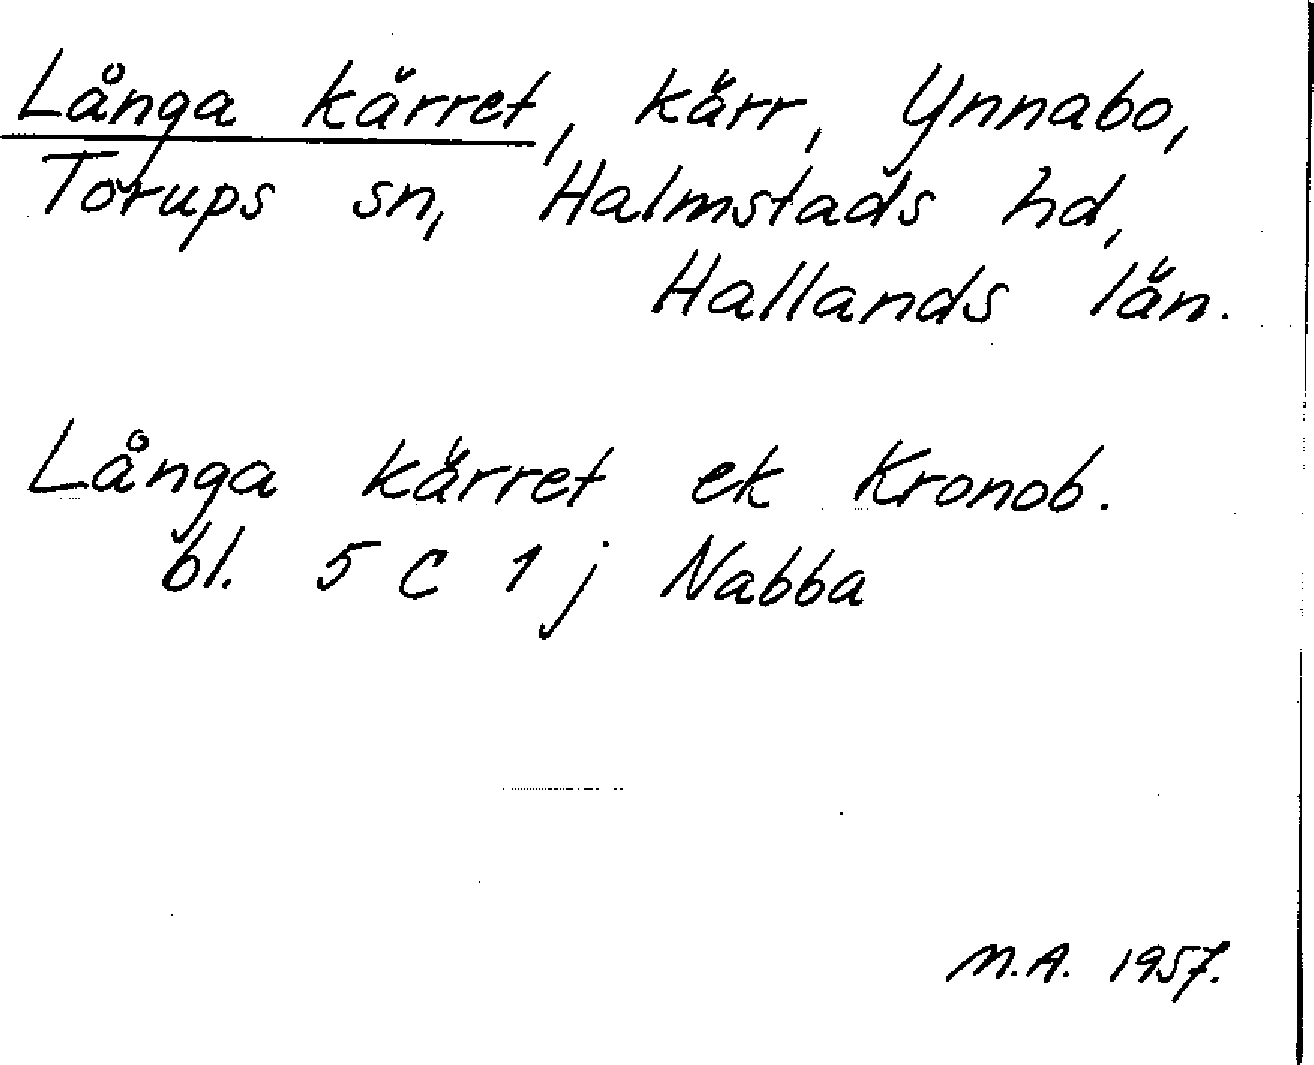 Långa kärret, kärr, Ynnabo,
Torups sn, Halmstads hd,
Hallands län.
Långa kärret ek Kronob.
bl. 5 C 1 j Nabba
M.A. 1957.